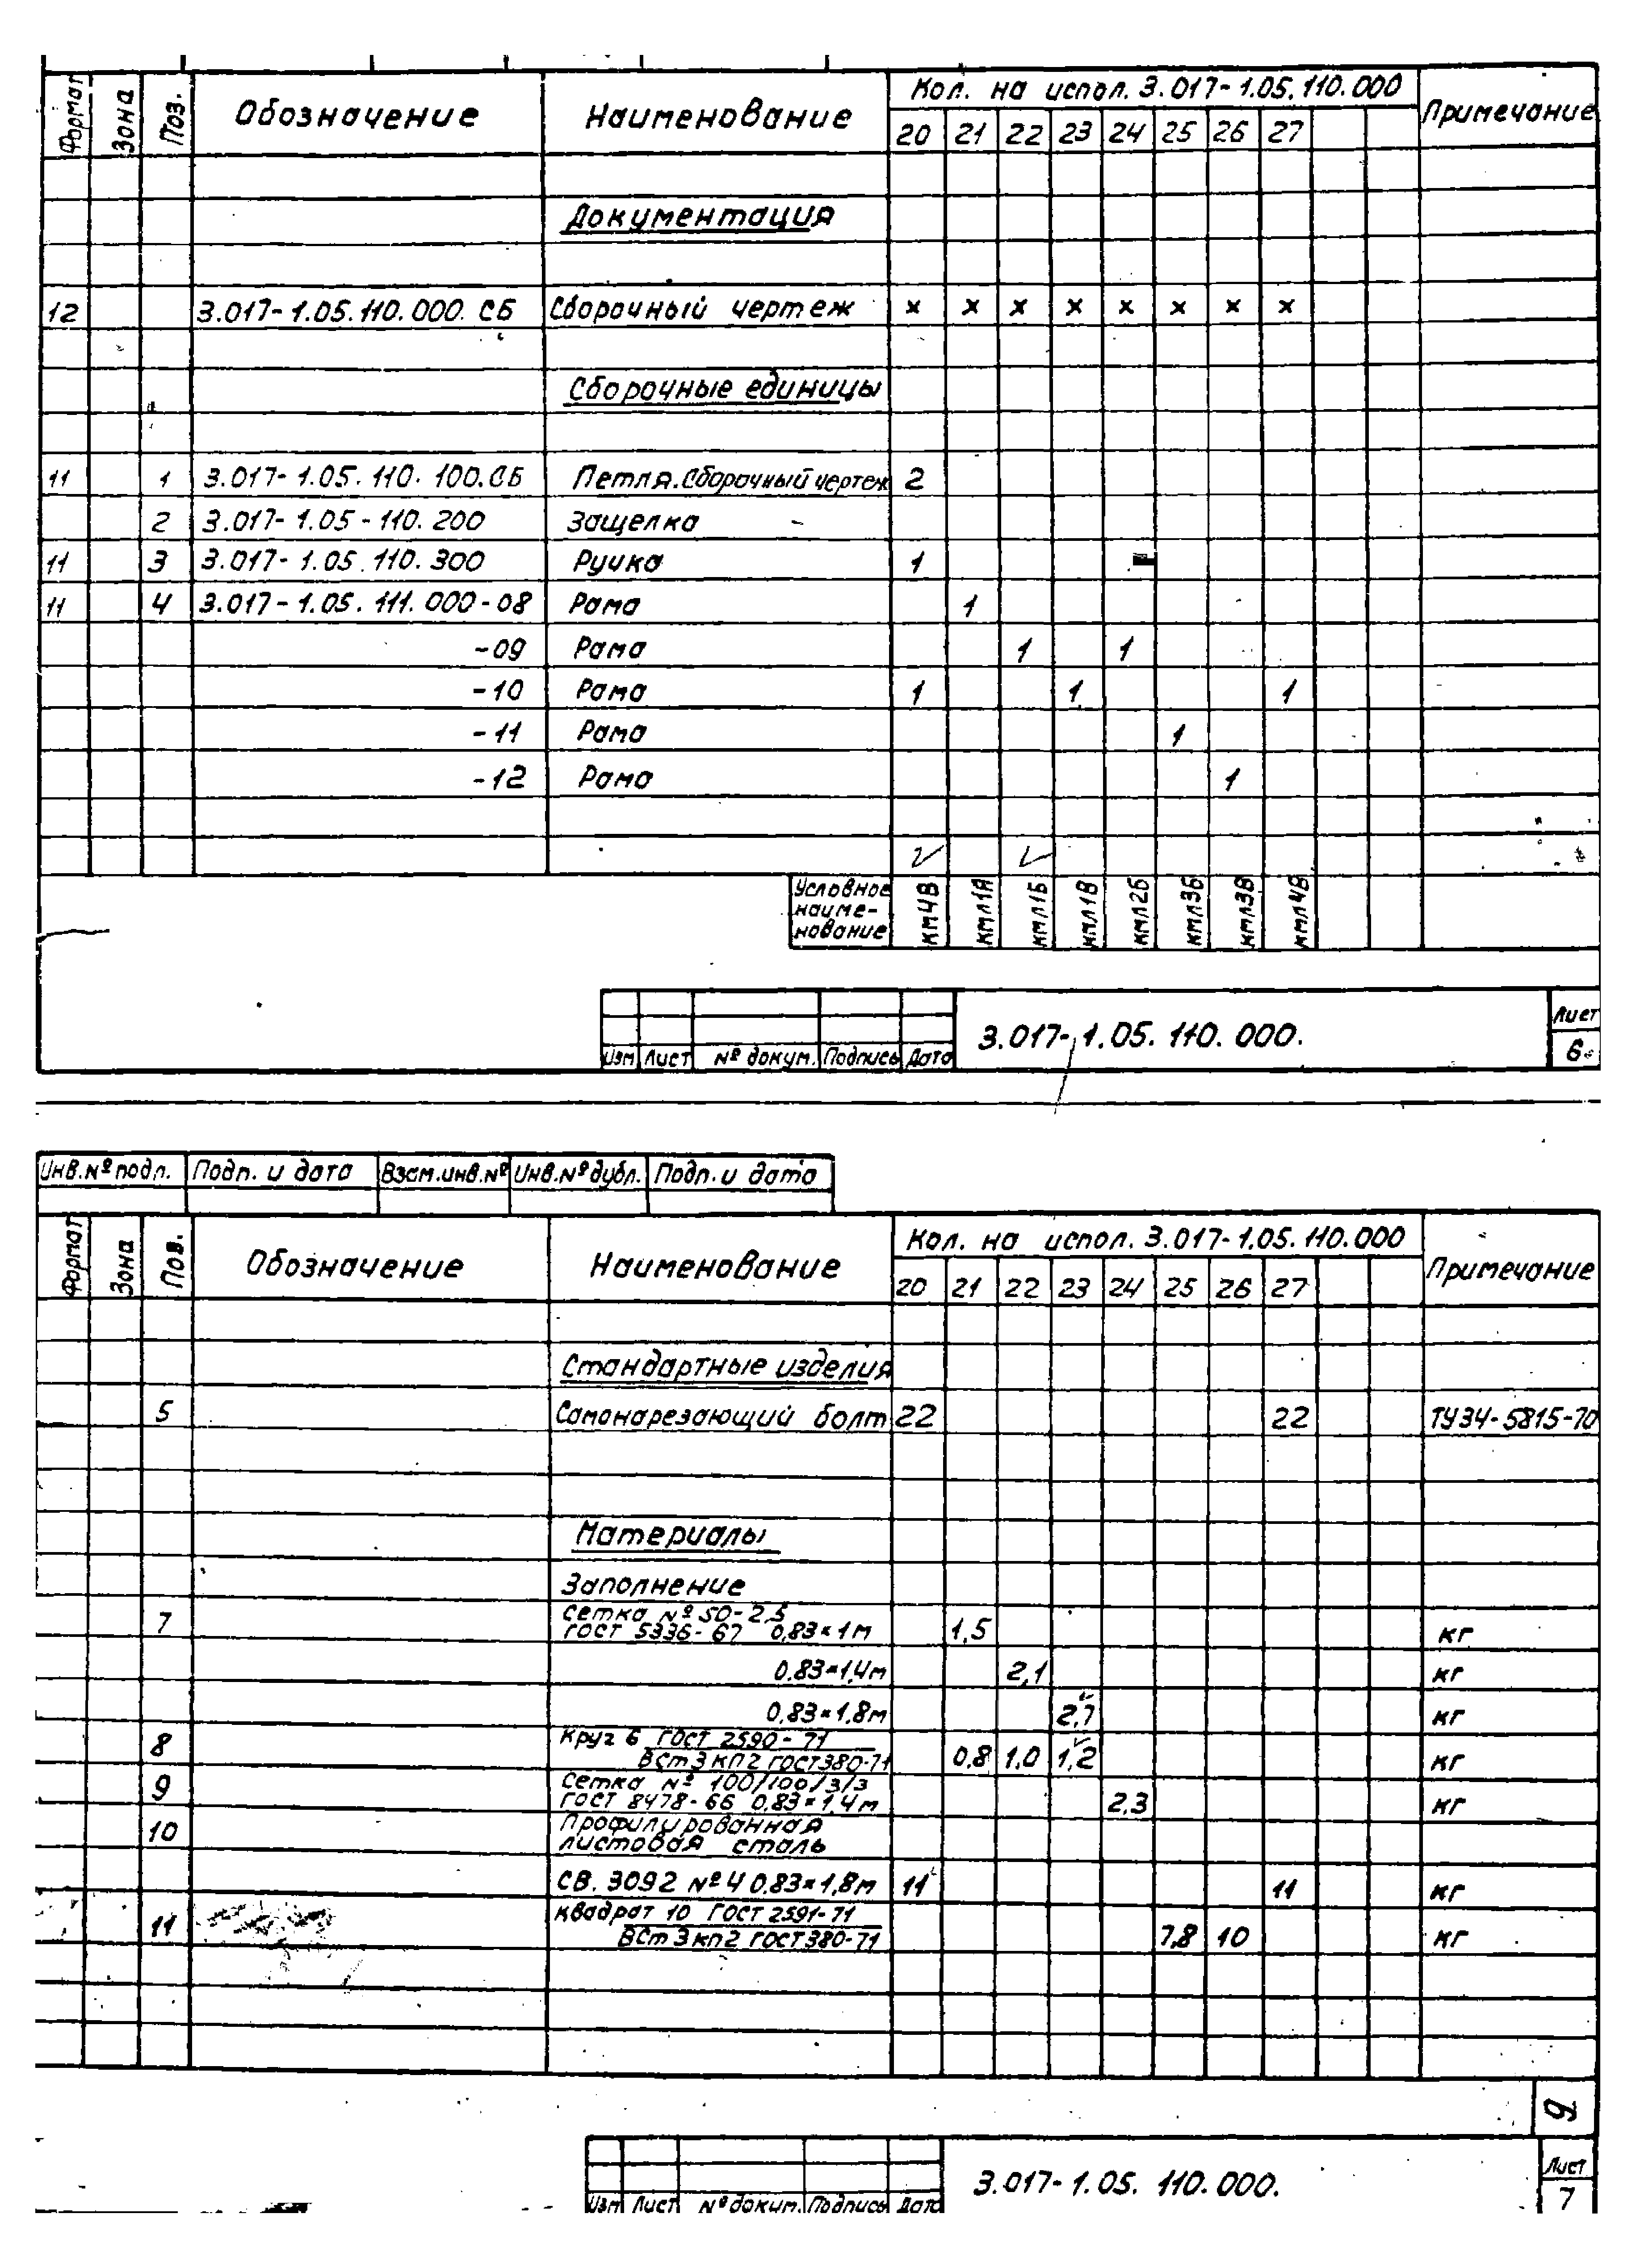 Формат Зона Поз. Обозначение Наименование Кол. на испол. 3.017-1.05.110.000 Примечание
20 21 22 23 24 25 26 27
Документация
12 3.017-1.05.110.000.СБ Сборочный чертеж × × × × × × × ×
Сборочные единицы
11 1 3.017-1.05.110.100.СБ Петля.Сборочный чертеж 2
2 3.017-1.05-110.200 Защелка -
11 3 3.017-1.05.110.300 Ручка 1
11 4 3.017-1.05.111.000-08 Рама 1
-09 Рама 1 1
-10 Рама 1 1 1
-11 Рама 1
-12 Рама 1
Условное наиме-нование КМ4В КМЛ1А КМЛ1Б КМЛ1В КМЛ2Б КМЛ3Б КМЛ3В КМЛ4В
3.017-1.05.110.000. Лист
Изм Лист № докум. Подпись Дата 6
Инв.№ подл. Подп. и дата Взам.инв.№ Инв.№ дубл. Подп. и дата
Формат Зона Поз. Обозначение Наименование Кол. на испол. 3.017-1.05.110.000 Примечание
20 21 22 23 24 25 26 27
Стандартные изделия
5 Самонарезающий болт 22 22 ТУ34-5815-70
Материалы
Заполнение
7 Сетка № 50-2,5
ГОСТ 5336-67 0,83×1м 1,5 кг
0,83×1,4м 2,1 кг
0,83×1,8м 2,7 кг
8 Круг 6 ГОСТ 2590-71
ВСт3кп2 ГОСТ380-71 0,8 1,0 1,2 кг
9 Сетка № 100/100/3/3
ГОСТ 8478-66 0,83×1,4м 2,3 кг
10 Профилированная
листовая сталь
СВ. 3092 №4 0,83×1,8м 11 11 кг
11 Квадрат 10 ГОСТ 2591-71
ВСт3кп2 ГОСТ380-71 7,8 10 кг
9
3.017-1.05.110.000. Лист
Изм Лист № докум. Подпись Дата 7